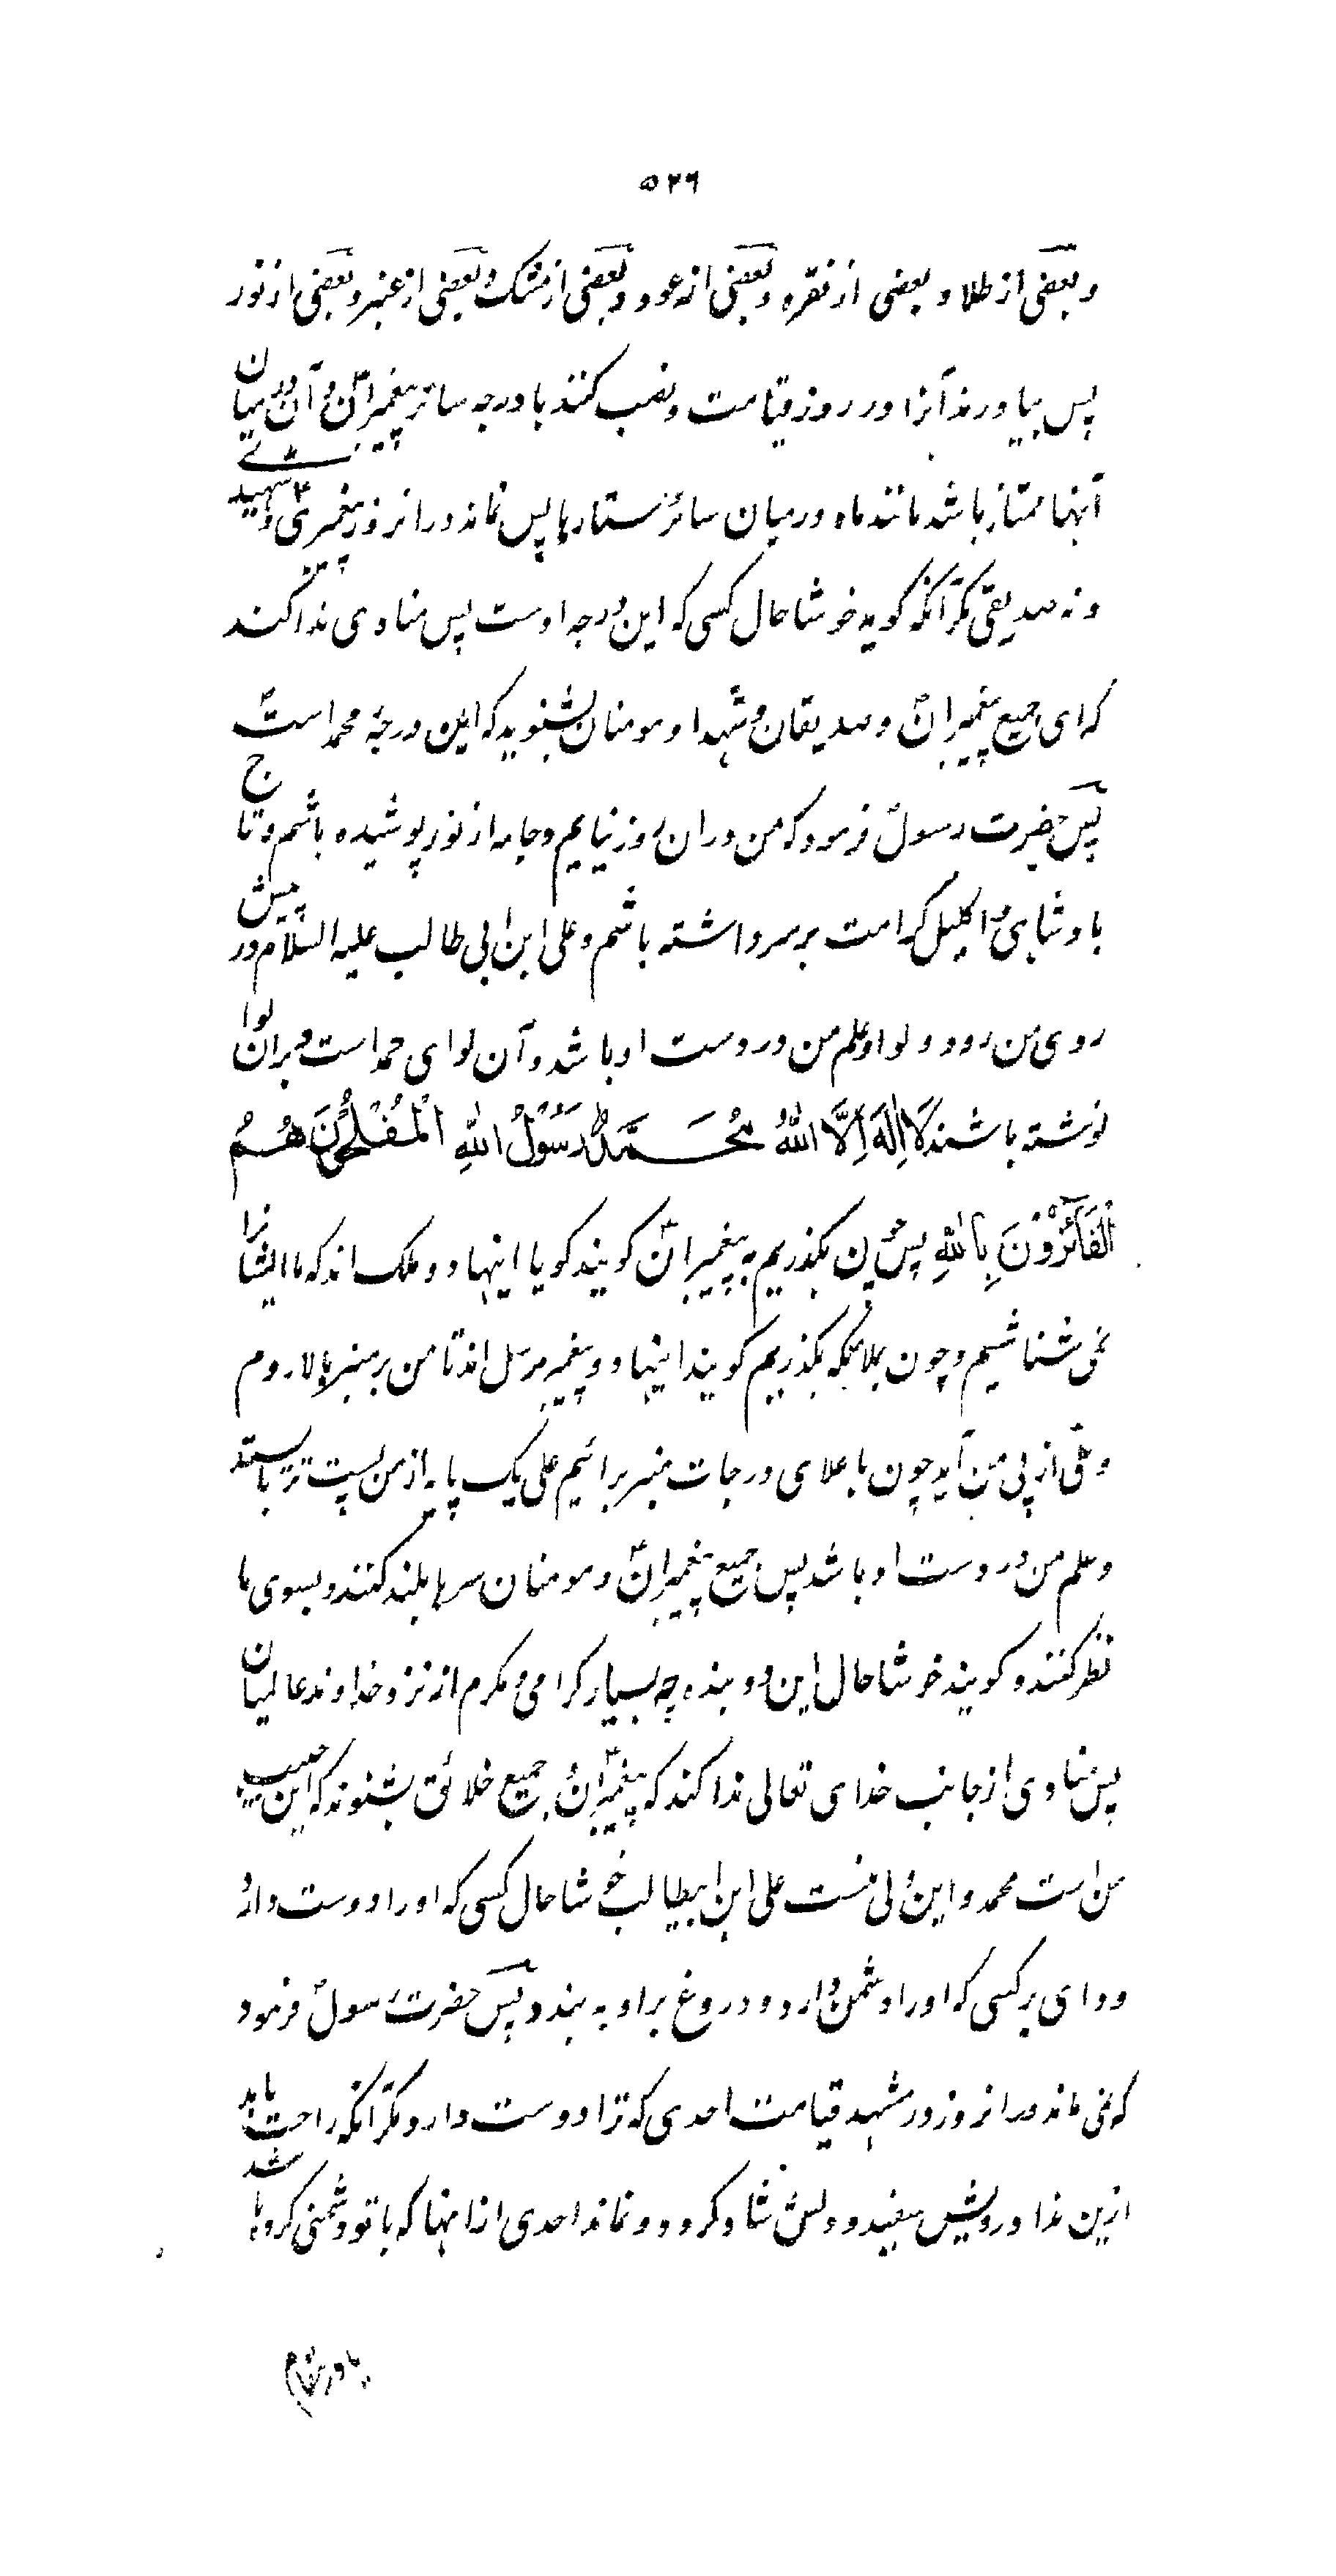 ۵۲۶
و بعضی از طلا و بعضی از نقره و بعضی از عود و بعضی از مشک و بعضی از عنبر و بعضی از نور
پس بیاورند آنرا در روز قیامت و نصب کنند با درجه سائر پیغمبرانؑ و آن در میان
آنها ممتاز باشد مانند ماه درمیان سائر ستارها پس نماند در انروز پیغمبریؑ و نه شهیدے
و نه صدیقی مگر آنکه گوید خوشا حال کسی که این درجه اوست پس منادی ندا کند
که ای جمیع پیغمبرانؑ و صدیقان و شهدا و مومنان بشنوید که این درجهٔ محمد استؐ
پس حضرت رسولؐ فرمود که من در ان روز نیایم و جامه از نور پوشیده باشم و تاج
بادشاهی و اکلیل کرامت بر سر داشته باشم و علی ابن ابی طالب علیه السلام در پیش
روی من رود و لوا و علم من در دست او باشد و آن لوای حمد است و بران لوا
نوشته باشند لَا اِلٰهَ اِلَّا اللّٰهُ مُحَمَّدٌ رَسُوْلُ اللّٰهِ الْمُفْلِحُوْنَ هُمُ
الْفَآئِزُوْنَ بِاللّٰهِ پس چون بگذریم به پیغمبرانؑ گویند گویا اینها دو ملک اند که ما ایشانرا
نمی شناسیم و چون بملائکه بگذریم گویند اینها دو پیغمبر مرسل اند تا من بر منبر بالا روم
و علی از پی من آید چون باعلای درجات منبر برائیم علی یک پایه از من پست تر بایستد
و علم من در دست او باشد پس جمیع پیغمبرانؑ و مومنان سرها بلند کنند و بسوی ما
نظر کنند و گویند خوشا حال این دو بنده چه بسیار گرامی و مکرم اند نزد خداوند عالمیان
پس منادی از جانب خدای تعالی ندا کند که پیغمبرانؑ و جمیع خلائق بشنوند که این حبیب
من است محمد و این ولی منست علی ابن ابیطالب خوشا حال کسی که او را دوست دارد
و وای بر کسی که او را دشمن دارد و دروغ بر او به بندد پس حضرت رسولؐ فرمود
که نمی ماند در انروز در مشهد قیامت احدی که ترا دوست دارد مگر آنکه راحت یابد
ازین ندا و رویش سفید و دلش شاد گردد و نماند احدی از انها که با تو دشمنی کرده باشد